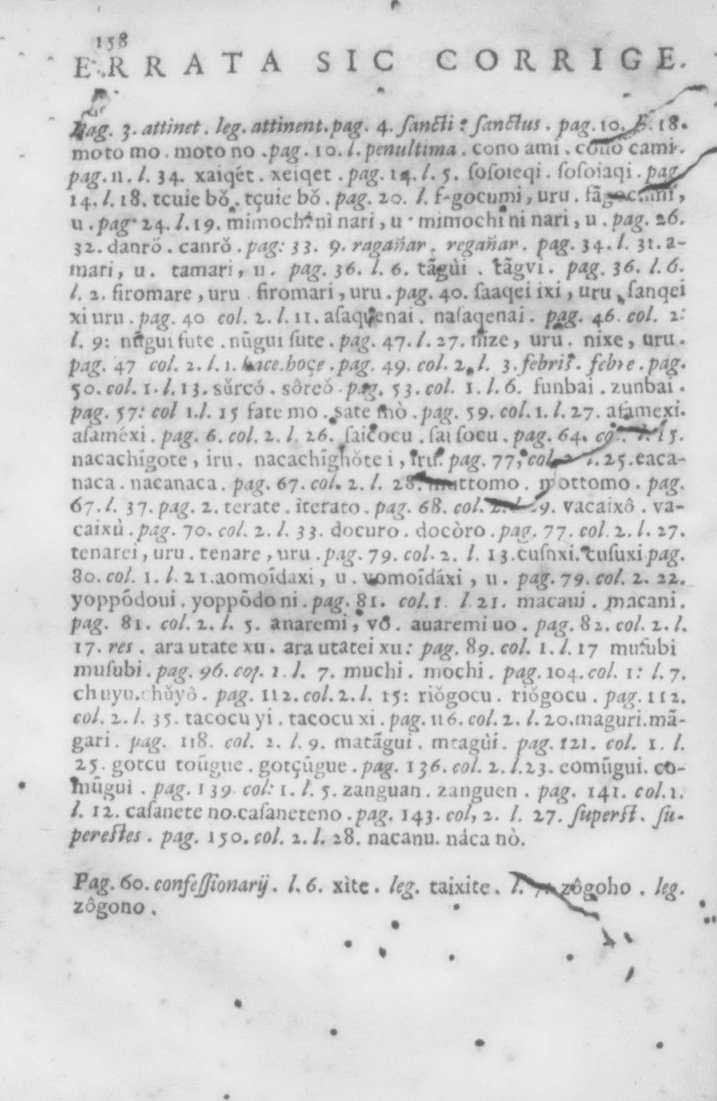 158
ERRATA SIC CORRIGE.
Pag. 3. attinet. leg. attinent. pag. 4. sancti: sanctus. pag. 10. l. 18.
moto mo. moto no. pag. 10. l. penultima. cono ami. cono cami.
pag. 11. l. 34. xaiqet. xeiqet. pag. 14. l. 5. sosoieqi. sosoiaqi. pag.
14. l. 18. tcuie bŏ. tçuie bŏ. pag. 20. l. f-gocumi, uru. sãgocumi,
u. pag. 24. l. 19. mimochi ni nari, u. mimochi ni nari, u. pag. 26.
32. danrŏ. canrŏ. pag: 33. 9. ragañar. regañar. pag. 34. l. 31. a-
mari, u. tamari, u. pag. 36. l. 6. tãgùi. tãgvi. pag. 36. l. 6.
l. 2. firomare, uru firomari, uru. pag. 40. saaqei ixi, uru, sanqei
xi uru. pag. 40 col. 2. l. 11. asaquenai. nasaqenai. pag. 46. col. 2:
l. 9: nũgui sute. nũgui sute. pag. 47. l. 27. mize, uru. nixe, uru.
pag. 47 col. 2. l. 1. hace. hoçe. pag. 49. col. 2. l. 3. febris. febre. pag.
50. col. 1. l. 13. sŭrcó. sôrcŏ. pag. 53. col. 1. l. 6. funbai. zunbai.
pag. 57: col 1. l. 15 fate mo. sate mò. pag. 59. col. 1. l. 27. asamexi.
asaméxi. pag. 6. col. 2. l. 26. saicocu. sai socu. pag. 64. l. 15.
nacachigote, iru. nacachĩghŏte i, iru. pag. 77, col. 2 l. 25. caca-
naca. nacanaca. pag. 67. col. 2. l. 28. mattomo. mottomo. pag.
67. l. 37. pag. 2. terate. iterato. pag. 68. col. 2. l. 9. vacaixô. va-
caixù. pag. 70. col. 2. l. 33. docuro. docòro. pag. 77. col. 2. l. 27.
tenarei, uru. tenare, uru. pag. 79. col. 2. l. 13. cusuxi. cusuxi pag.
80. col. 1. l. 21. aomoĩdaxi, u. vomoĩdáxi, u. pag. 79. col. 2. 22.
yoppõdoui. yoppõdo ni. pag. 81. col. 1 l 21. macaui. macani.
pag. 81. col. 2. l. 5. anaremi, vŏ. auaremi uo. pag. 82. col. 2. l.
17. res. ara utate xu. ara utatei xu: pag. 89. col. 1. l. 17 musubi
musubi. pag. 96. col. 1. l. 7. muchi. mochi. pag. 104. col. 1: l. 7.
chuyu. chŭyô. pag. 112. col. 2. l. 15: riŏgocu. riŏgocu. pag. 112.
col. 2. l. 35. tacocu yi. tacocu xi. pag. 116. col. 2. l. 20. maguri. mã-
gari. pag. 118. col. 2. l. 9. matãgui. mtagùi. pag. 121. col. 1. l.
25. gotcu toũgue. gotçũgue. pag. 136. col. 2. l. 23. eomũgui. co-
mũgui. pag. 139. col: 1. l. 5. zanguan. zanguen. pag. 141. col. 1.
l. 12. casanete no. casaneteno. pag. 143. col, 2. l. 27. superst. su-
perestes. pag. 150. col. 2. l. 28. nacanu. náca nò.
Pag. 60. confessionarij. l. 6. xìte. leg. taixite. l. 7. zôgoho. leg.
zôgono.